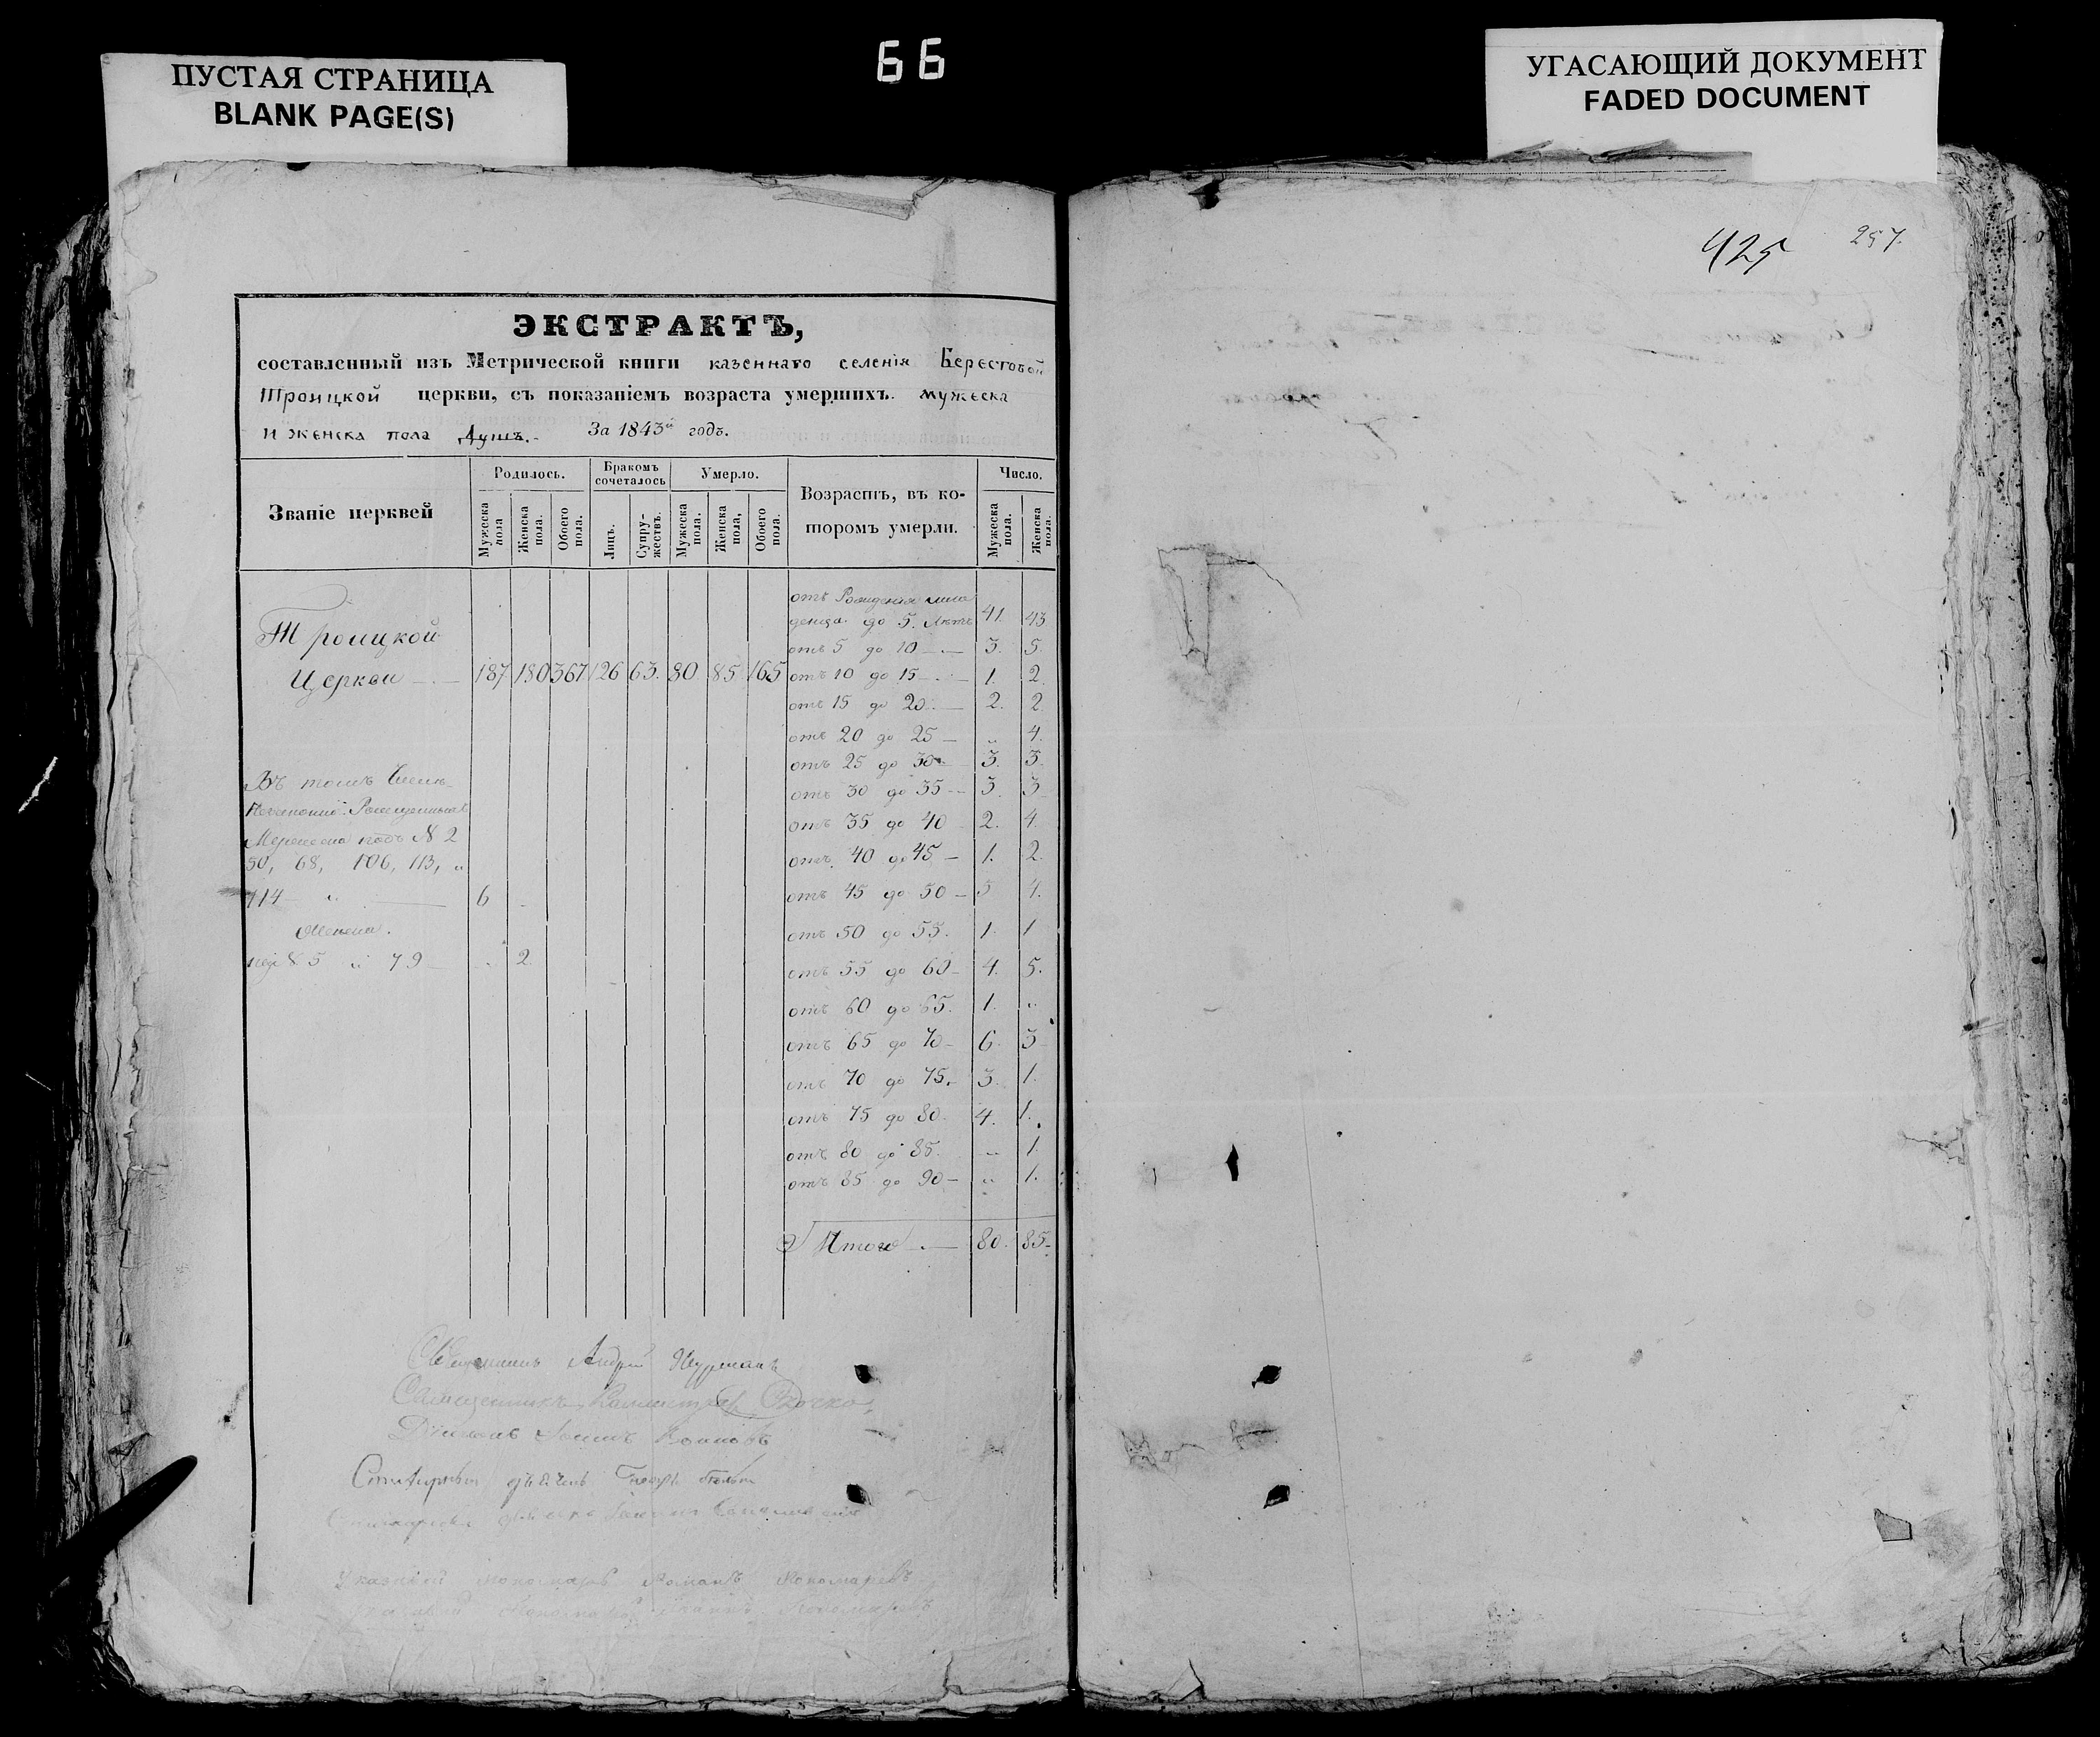 ПУСТАЯ СТРАНИЦА
BLANK PAGE(S)
66
УГАСАЮЩИЙ ДОКУМЕНТ
FADED DOCUMENT
425 257.
ЭКСТРАКТЪ,
составленный изъ Метрической книги казеннаго селенія Берестовой
Троицкой церкви, съ показаніемъ возраста умершихъ. мужеска
и женска пола душъ. За 1843й годъ.
Званіе церквей
Родилось.
Бракомъ сочеталось
Умерло.
Возрастъ, въ котором умерли.
Число.
Мужеска пола
Женска пола.
Обоего пола.
Лицъ.
Супружествъ.
Мужеска пола.
Женска пола,
Обоего пола.
Мужеска пола.
Женска пола.
Троицкой
Церкви 187 180 367 126 63. 80. 85 165
отъ Рожденія мла
денца до 5. лѣтъ 41. 43
отъ 5 до 10 3. 5.
отъ 10 до 15 1. 2.
отъ 15 до 20 2. 2
отъ 20 до 25 — „ 4.
отъ 25 до 30 3. 3.
отъ 30 до 35 3. 3
отъ 35 до 40 2. 4.
отъ 40 до 45 — 1. 2.
отъ 45 до 50 — 5 4.
отъ 50 до 55. 1. 1
отъ 55 до 60 4. 5.
отъ 60 до 65. 1. „
отъ 65 до 70 6. 3
отъ 70 до 75. 3. 1.
отъ 75 до 80. 4. 1.
отъ 80 до 85. „ 1.
отъ 85 до 90 — „ 1.
Итого 80. 85
Въ томъ Числѣ
Мужеска подъ N 2
50, 68, 106, 113, и
114 6
Женска.
под N 5 и 79 2.
Священникъ Андрей
Священникъ
Діаконъ
Указный пономарь Романъ Пономаревъ
Пономаревъ